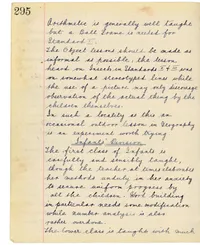 295
Arithmetic is generally well taught
but a Ball Frame is needed for
Standard I.
The Object lessons should be made as
informal as possible, the lesson
heard on Insects in Standards I & II was
on somewhat stereotyped lines while
the use of a picture may only discourage
observation of the actual thing by the
children themselves.
In such a locality as this an
occasional outdoor lesson in Geography
is an experiment worth trying
Infants Division
The first class of Infants is
carefully and sensibly taught,
though the teacher at times elaborates
her methods unduly in her anxiety
to secure uniform progress by
all the children. Word building
in particular needs some modification
while number analysis is also
rather overdone.
The lower class is taught with much